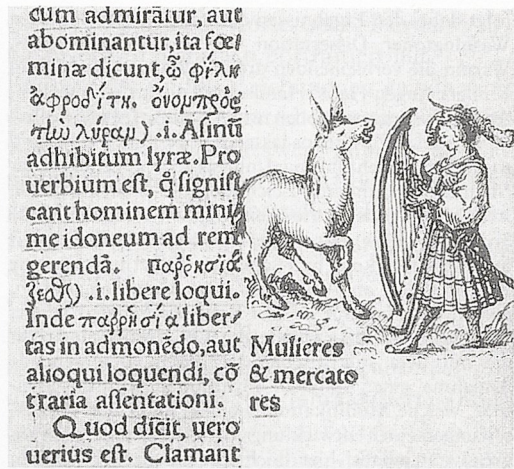 cum admirãtur, aut
abominantur, ita fœ
minæ dicunt, ὦ φίλη
ἀφροδίτη. ὄνομ πρὸς
τὴν λύραμ). .i. Asinũ
adhibitum lyræ. Pro
uerbium est, q̃ signifi
cant hominem mini
me idoneum ad rem
gerendã. παῤῥησϊά
ζεσθαι) .i. libere loqui.
Inde παῤῥησία liber
tas in admonẽdo, aut
alioqui loquendi, cõ
traria assentationi.
Quod dicit, uero
uerius est. Clamant
Mulieres
& mercato
res